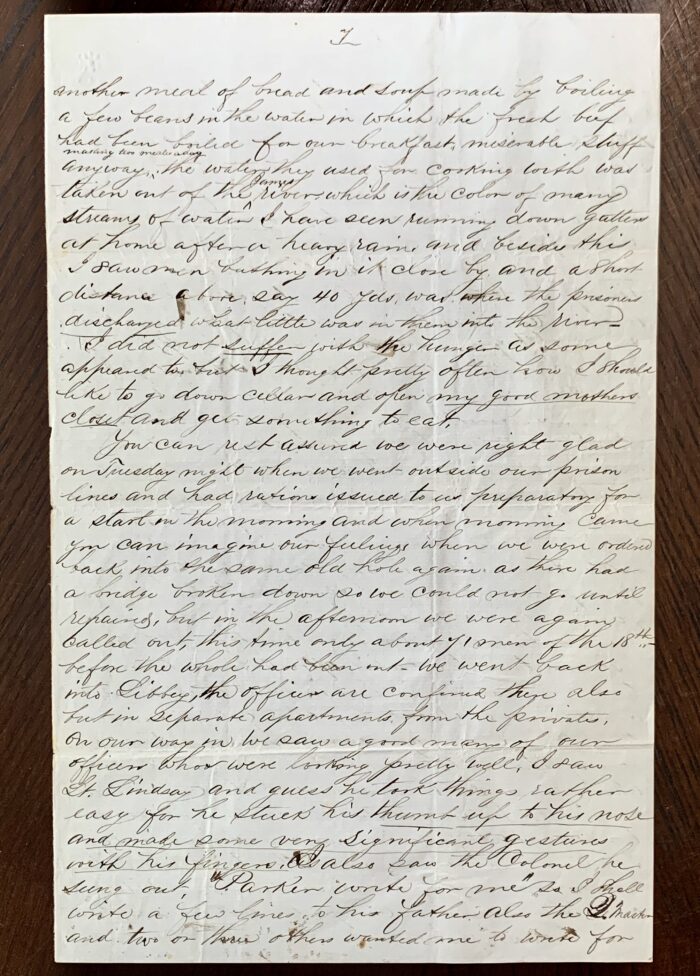 7
another meal of bread and soup made by boiling
a few beans in the water in which the fresh beef
had been boiled for our breakfast, miserable stuff
making two meals a day
anyway, the water they used for cooking with was
James
taken out of the river, which is the color of many
streams of water I have seen running down gutters
at home after a heavy rain, and beside this
I saw men bathing in it close by, and a short
distance above, say 40 yds, was where the prisoners
discharged what little was in them into the river
I did not suffer with the hunger as some
appeared to, but I thought pretty often how I should
like to go down cellar and open my good mothers
closet and get something to eat.
You can rest assured we were right glad
on Tuesday night when we went outside our prison
lines and had rations issued to us preparatory for
a start in the morning and when morning came
you can imagine our feelings when we were ordered
back into the same old hole again as there had
a bridge broken down so we could not go until
repaired, but in the afternoon we were again
called out, this time only about 71 men of the 18th
before the whole had been out we went back
into Libbey, the officers are confined there also
but in separate apartments from the privates,
on our way in we saw a good many of our
officers who were looking pretty well, I saw
Lt. Lindsay and guess he took things rather
easy for he stuck his thumb up to his nose
and made some very significant gestures
with his fingers, I also saw the Colonel he
sung out "Parker write for me" so I shall
write a few lines to his father, also the
and two or three others wanted me to write for